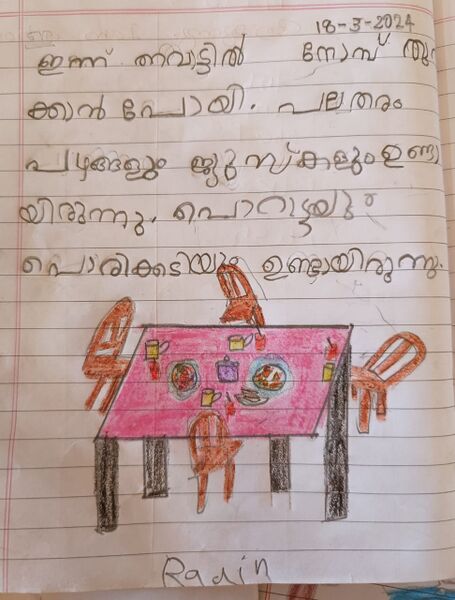 18-3-2024
ഇന്ന് തറവാട്ടിൽ നോമ്പ് തുറ
ക്കാൻ പോയി. പലതരം
പഴങ്ങളും ജ്യൂസ്കളും ഉണ്ടാ
യിരുന്നു. പൊറാട്ടയും
പൊരിക്കടിയും ഉണ്ടായിരുന്നു.